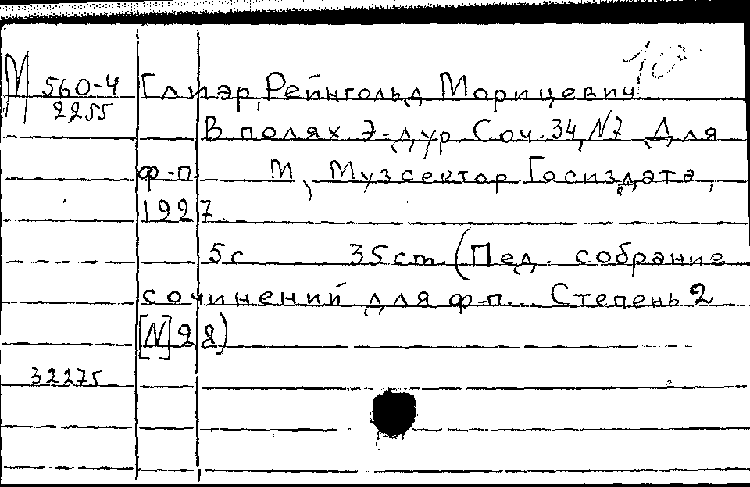 10
М 560-4 Глиэр, Рейнгольд Морицевич
2255
В полях. Э-дур Соч. 34, N7 Для
ф-п М, Музсектор Госиздата,
1927
5с 35cm (Пед. собрание
сочинений для ф-п... Степень 2
[N] 28)
32275